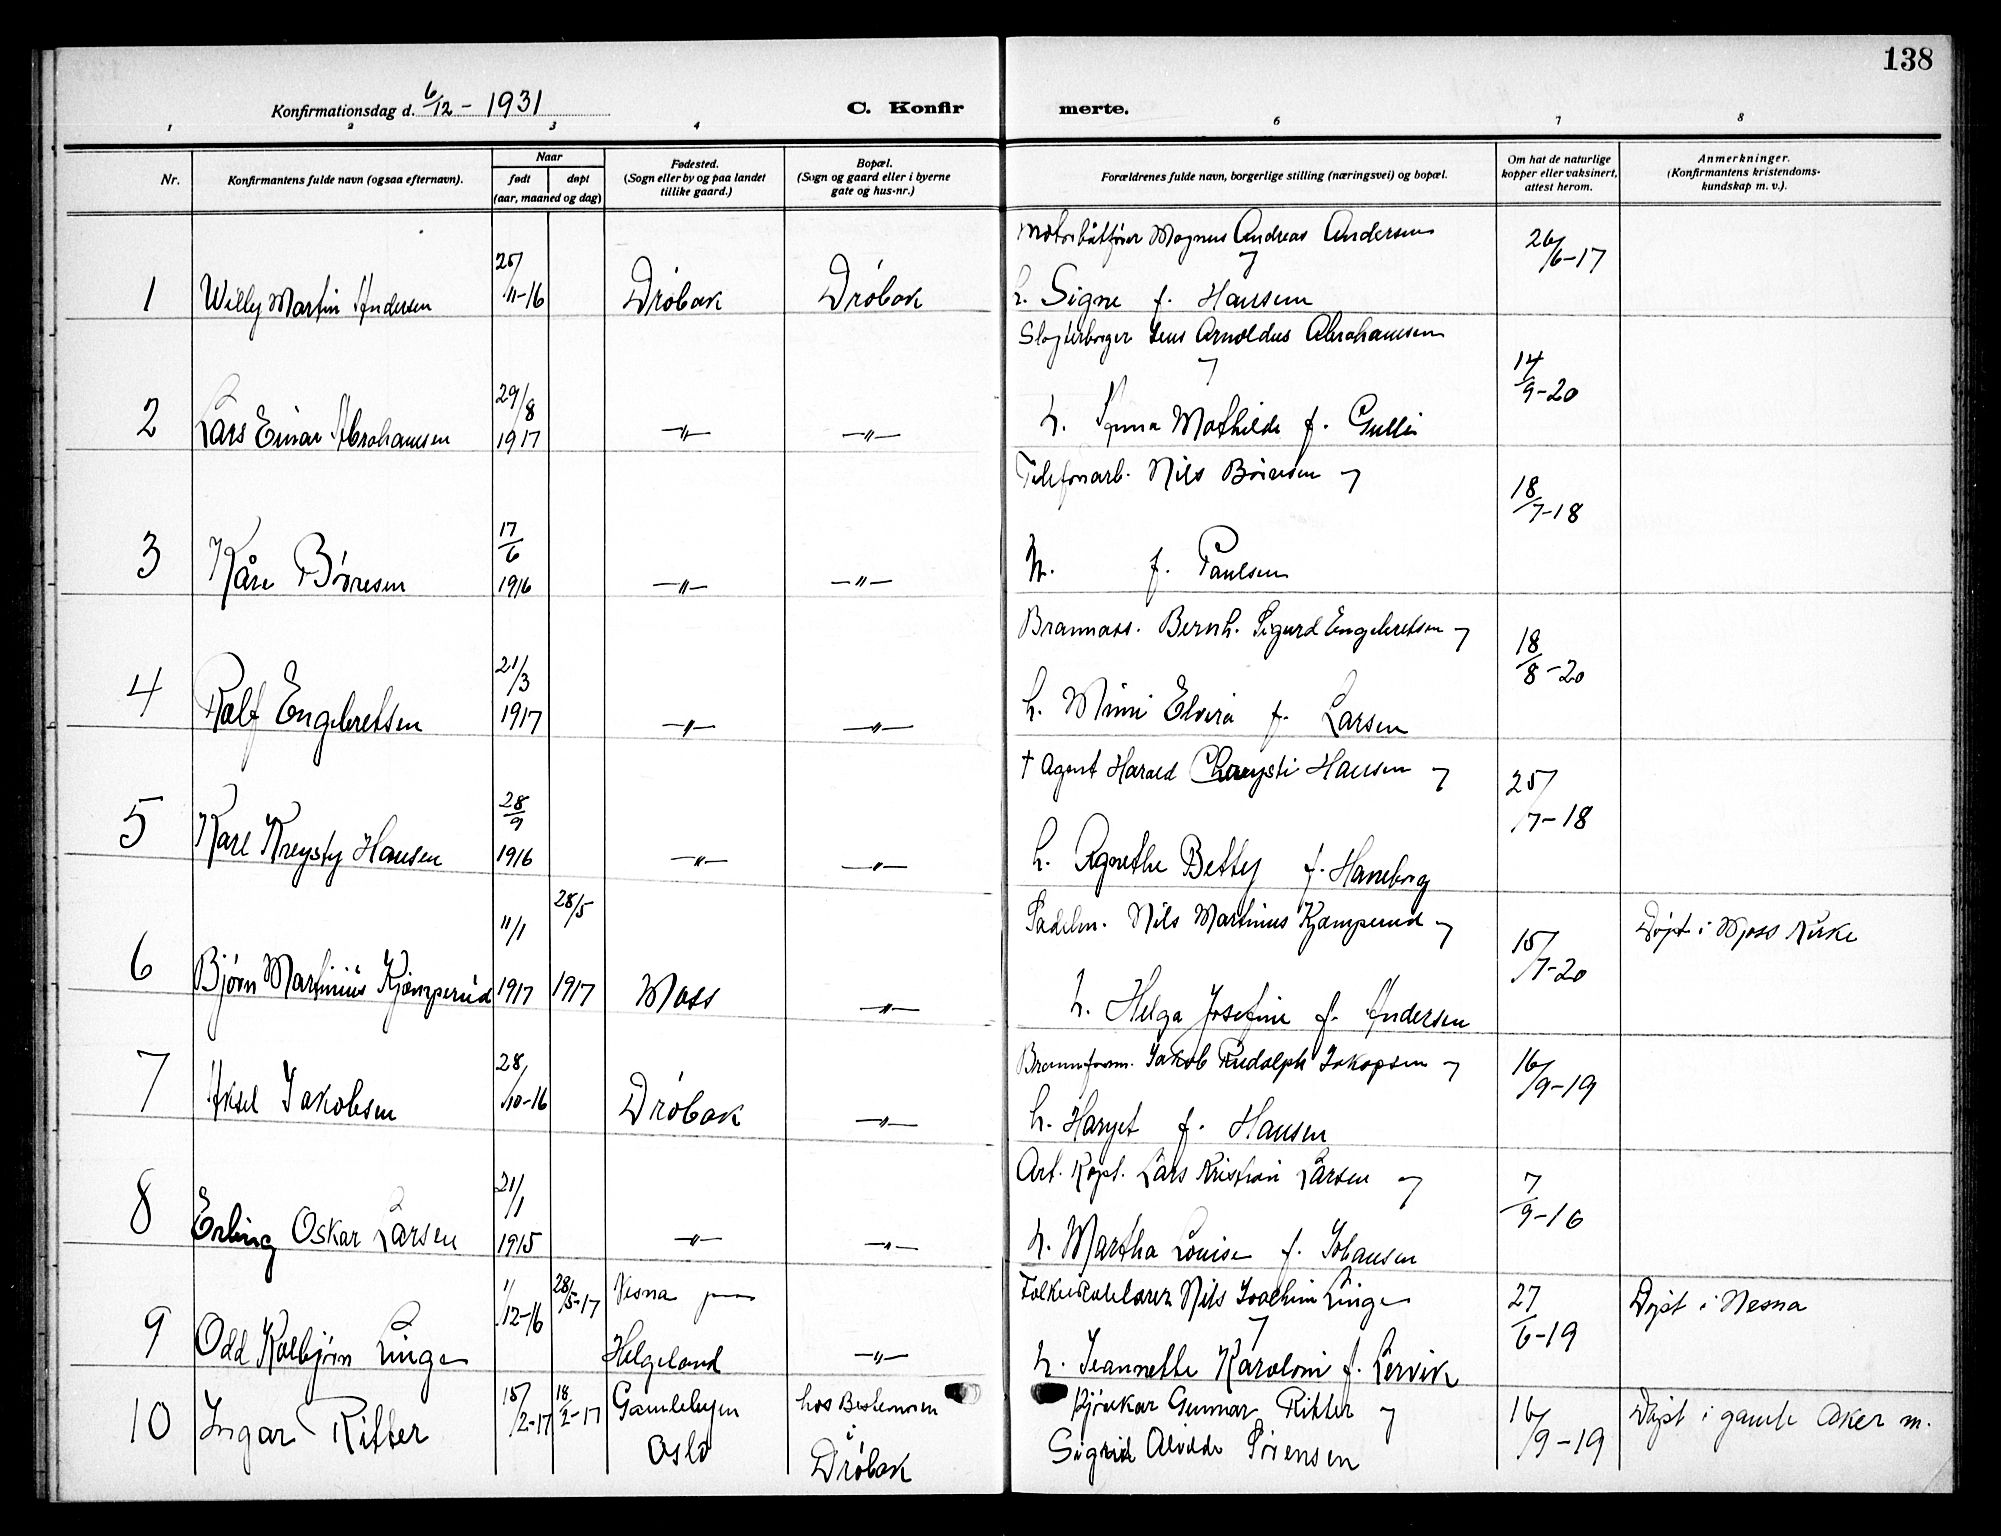 138
Konfirmationsdag d. 6/12 - 1931
C. Konfirmerte.
1 2 3 4 6 7 8
Nr.
Konfirmantens fulde navn (ogsaa efternavn).
Naar
født døpt
(aar, maaned og dag)
Fødested.
(Sogn eller by og paa landet
tillike gaard.)
Bopæl.
(Sogn og gaard eller i byerne
gate og hus-nr.)
Forældrenes fulde navn, borgerlige stilling (næringsvei) og bopæl.
Om hat de naturlige
kopper eller vaksinert,
attest herom.
Anmerkninger.
(Konfirmantens kristendoms-
kundskap m. v.).
Motorbåtfører Magnus Andreas Andersen
og
1 Willy Martin Andersen 25/11-16 Drøbak Drøbak h. Signe f. Hansen 26/6-17
Slagterborger Jens Arnoldus Abrahamsen
og
2 Lars Einar Abrahamsen 29/8 1917 -"- -"- h. Anna Mathilde f. Gulli 14/9-20
Telefonarb. Nils Børresen og
3 Kåre Børresen 17/6 1916 -"- -"- h. f. Paulsen 18/7-18
Brannass. Bernh. Sigurd Engebretsen og
4 Ralf Engebretsen 21/3 1917 -"- -"- h. Mimi Elvira f. Larsen 18/8-20
† Agent Harald Chrysti Hansen og
5 Karl Kreysty Hansen 28/9 1916 -"- -"- h. Agnethe Betty f. Haneborg 25/7-18
Sadelm. Nils Martinius Kjæmperud og
6 Bjørn Martinius Kjæmperud 11/1 1917 28/5 1917 Moss -"- h. Helga Josefine f. Andersen 15/7-20 Døpt i Moss kirke
Brannform. Jakob Rudolph Jakopsen og
7 Aksel Jakobsen 28/10-16 Drøbak -"- h. Haryet f. Hansen 16/9-19
Art. Kapt. Lars Kristian Larsen og
8 Erling Oskar Larsen 21/1 1915 -"- -"- h. Martha Louise f. Johansen 7/9-16
Folkeskolelærer Nils Joachim Linge
og
9 Odd Kolbjørn Linge 11/12-16 28/5-17 Nesna paa
Helgeland -"- h. Jeannette Karoloni f. Lervik 27/6-19 Døpt i Nesna
10 Ingar Ritter 15/2-17 18/2-17 Gamlebyen
Oslo hos Bestemoren
i
Drøbak Bjørnkar Gunnar Ritter og
Sigrid Alvilde Sørensen 16/9-19 Døpt i gamle Aker m.